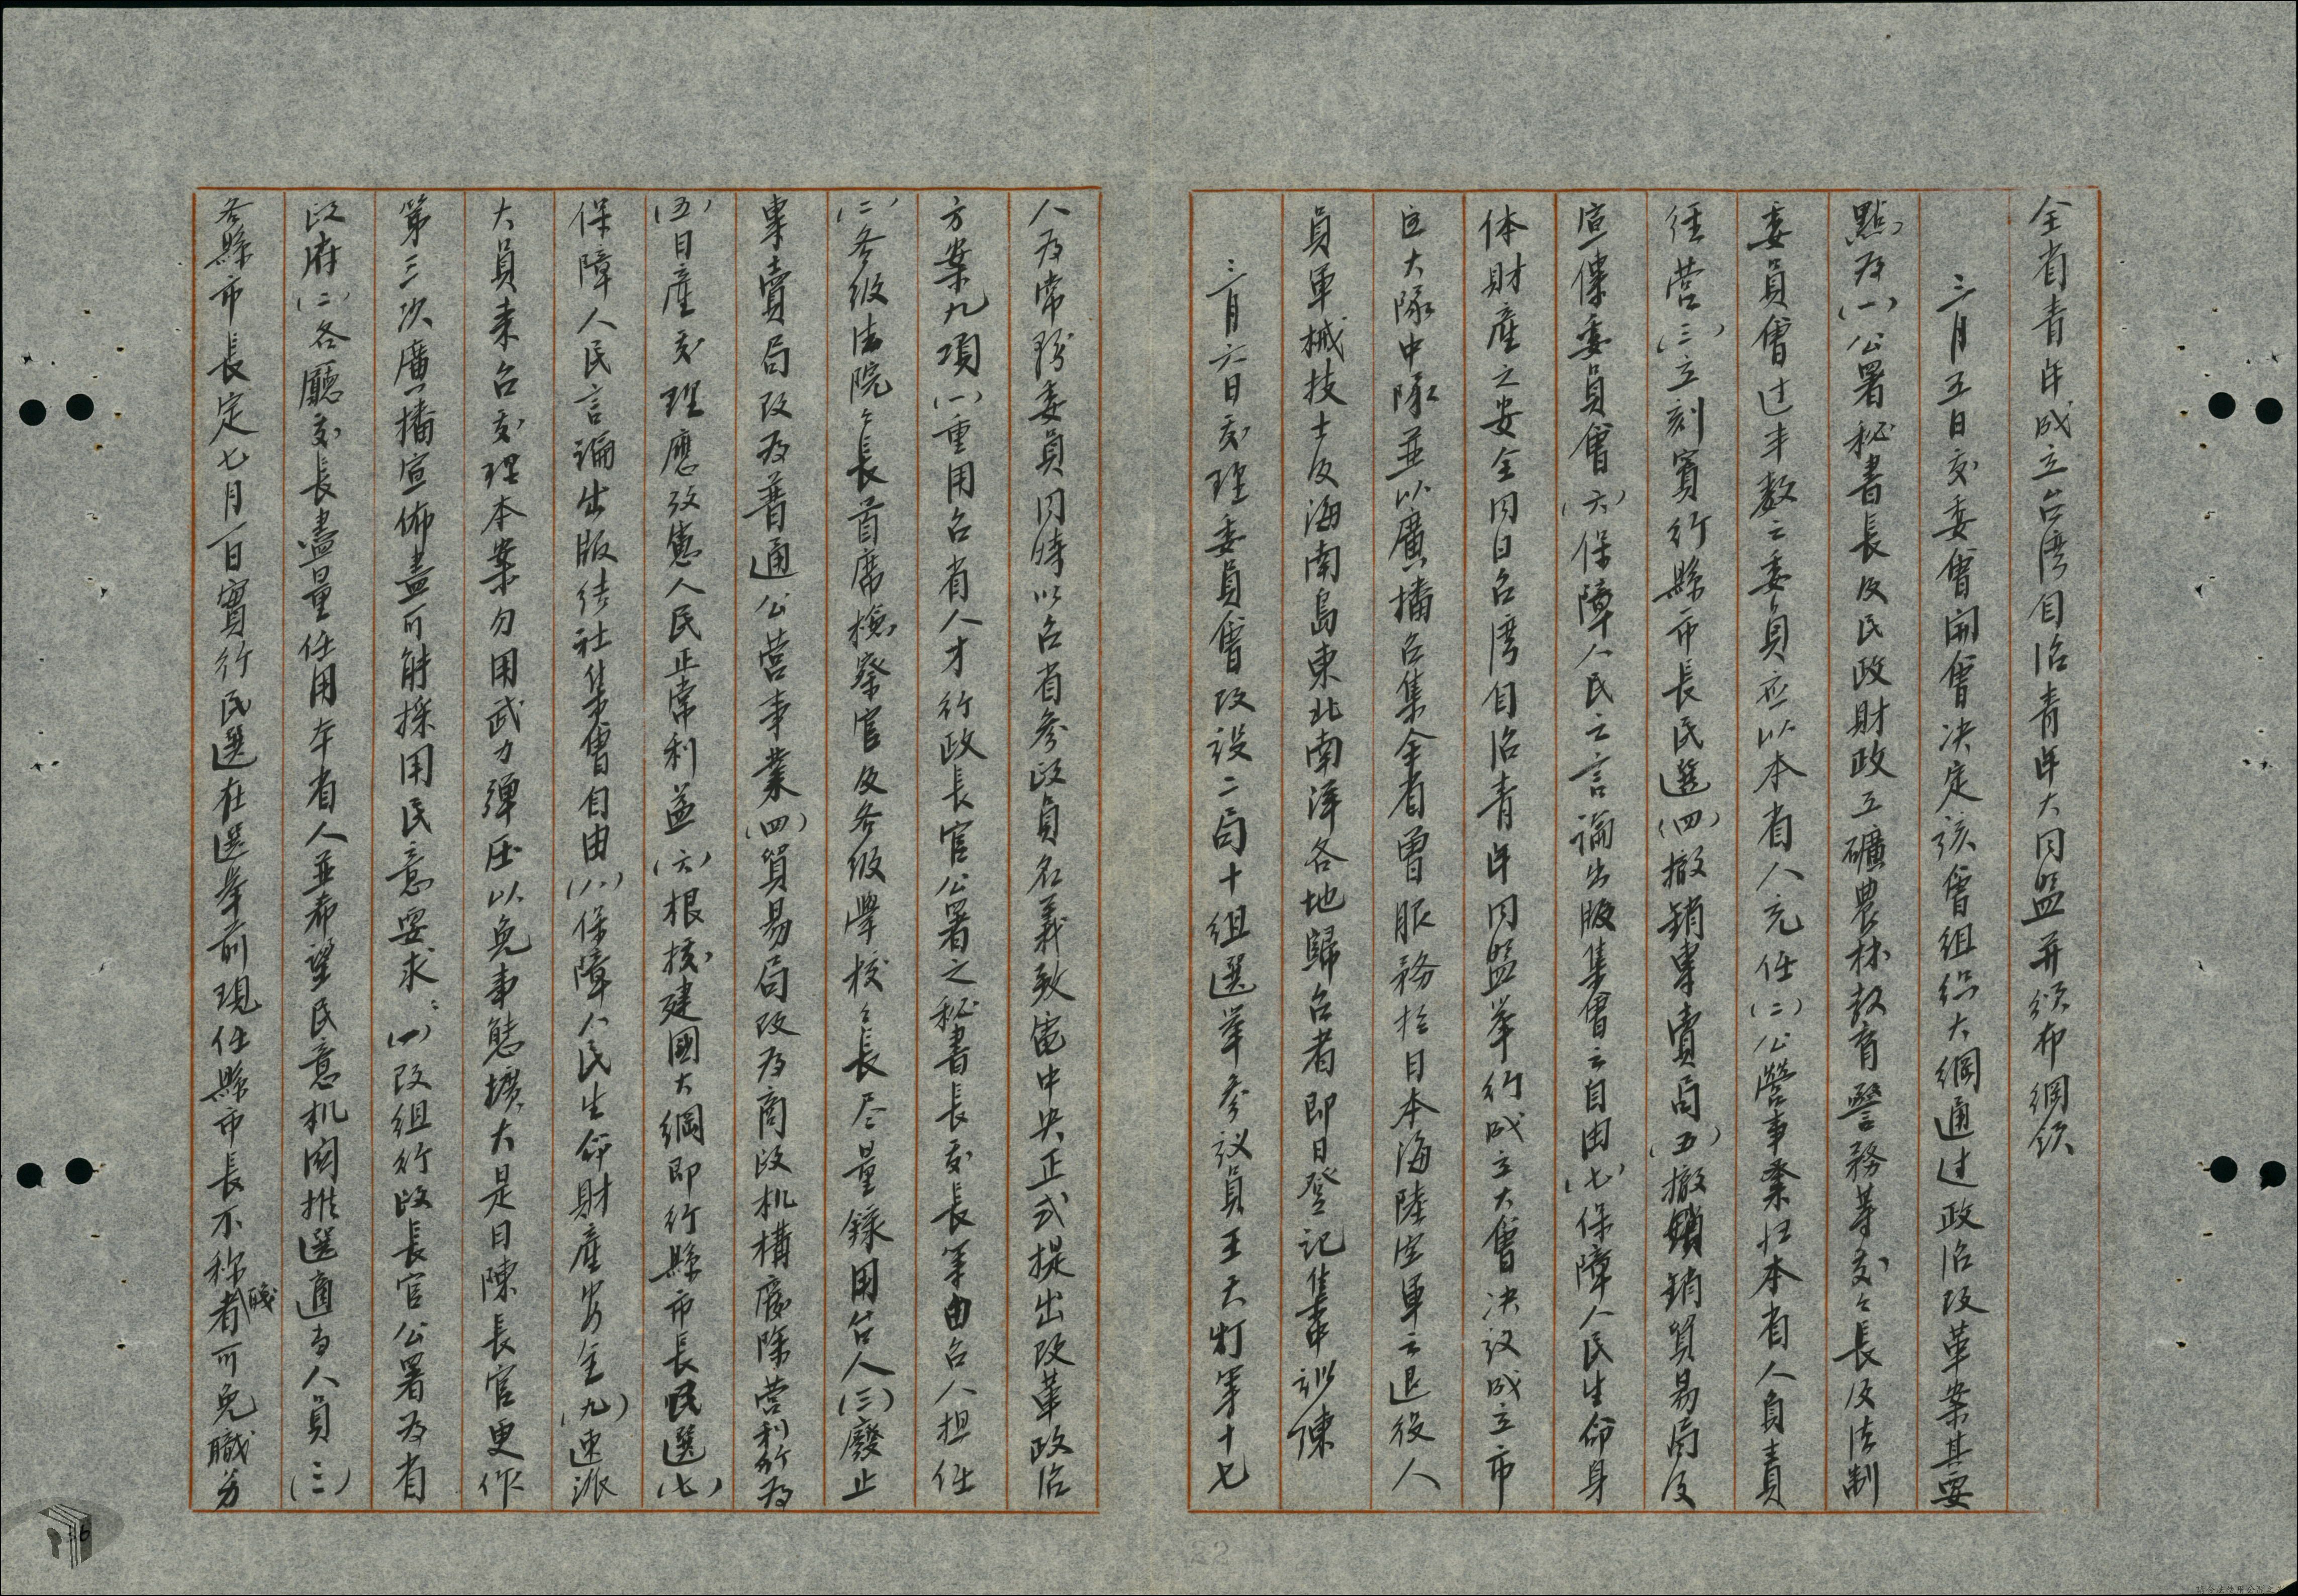 全省青年成立台湾自治青年大同盟并頒布綱領
三月五日處委會開會决定該會組织大綱通过政治改革案其要
點為(一)公署秘書長及民政財政工礦農林教育警務等處々長及法制
委員會过半數之委員应以本省人充任(二)公營事業归本省人負責
经营(三)立刻實行縣市長民選(四)撤銷專賣局(五)撤銷貿易局及
宣傳委員會(六)保障人民之言論出版集會之自由(七)保障人民生命身
体財產之安全同日台湾自治青年同盟举行成立大會决议成立市
区大隊中隊並以廣播召集全省曾服務於日本海陸空軍之退役人
員軍械技士及海南島東北南洋各地歸台者即日登记集中训陳
三月六日處理委員會改設二局十組選举參议員王天灯等十七
人为常務委員同時以台省參政員名義致電中央正式提出改革政治
方案九項(一)重用台省人才行政長官公署之秘書長處長等由台人担任
(二)各级法院々長首席檢察官及各级學校々長尽量録用台人(三)廢止
專賣局改為普通公营事業(四)貿易局改為商政机構廢除营利行為
(五)日產處理應考慮人民正常利益(六)根據建國大綱即行縣市長民選(七)
保障人民言論出版结社集會自由(八)保障人民生命財產安全(九)速派
大員来台處理本案勿用武力彈压以免事態擴大是日陳長官更作
第三次廣播宣佈盡可能採用民意要求：(一)改组行政長官公署為省
政府(二)各廳處長盡量任用本省人並希望民意机関推選適当人員(三)
各縣市長定七月一日實行民選在選举前現任縣市長不称職者可免職另
22
16